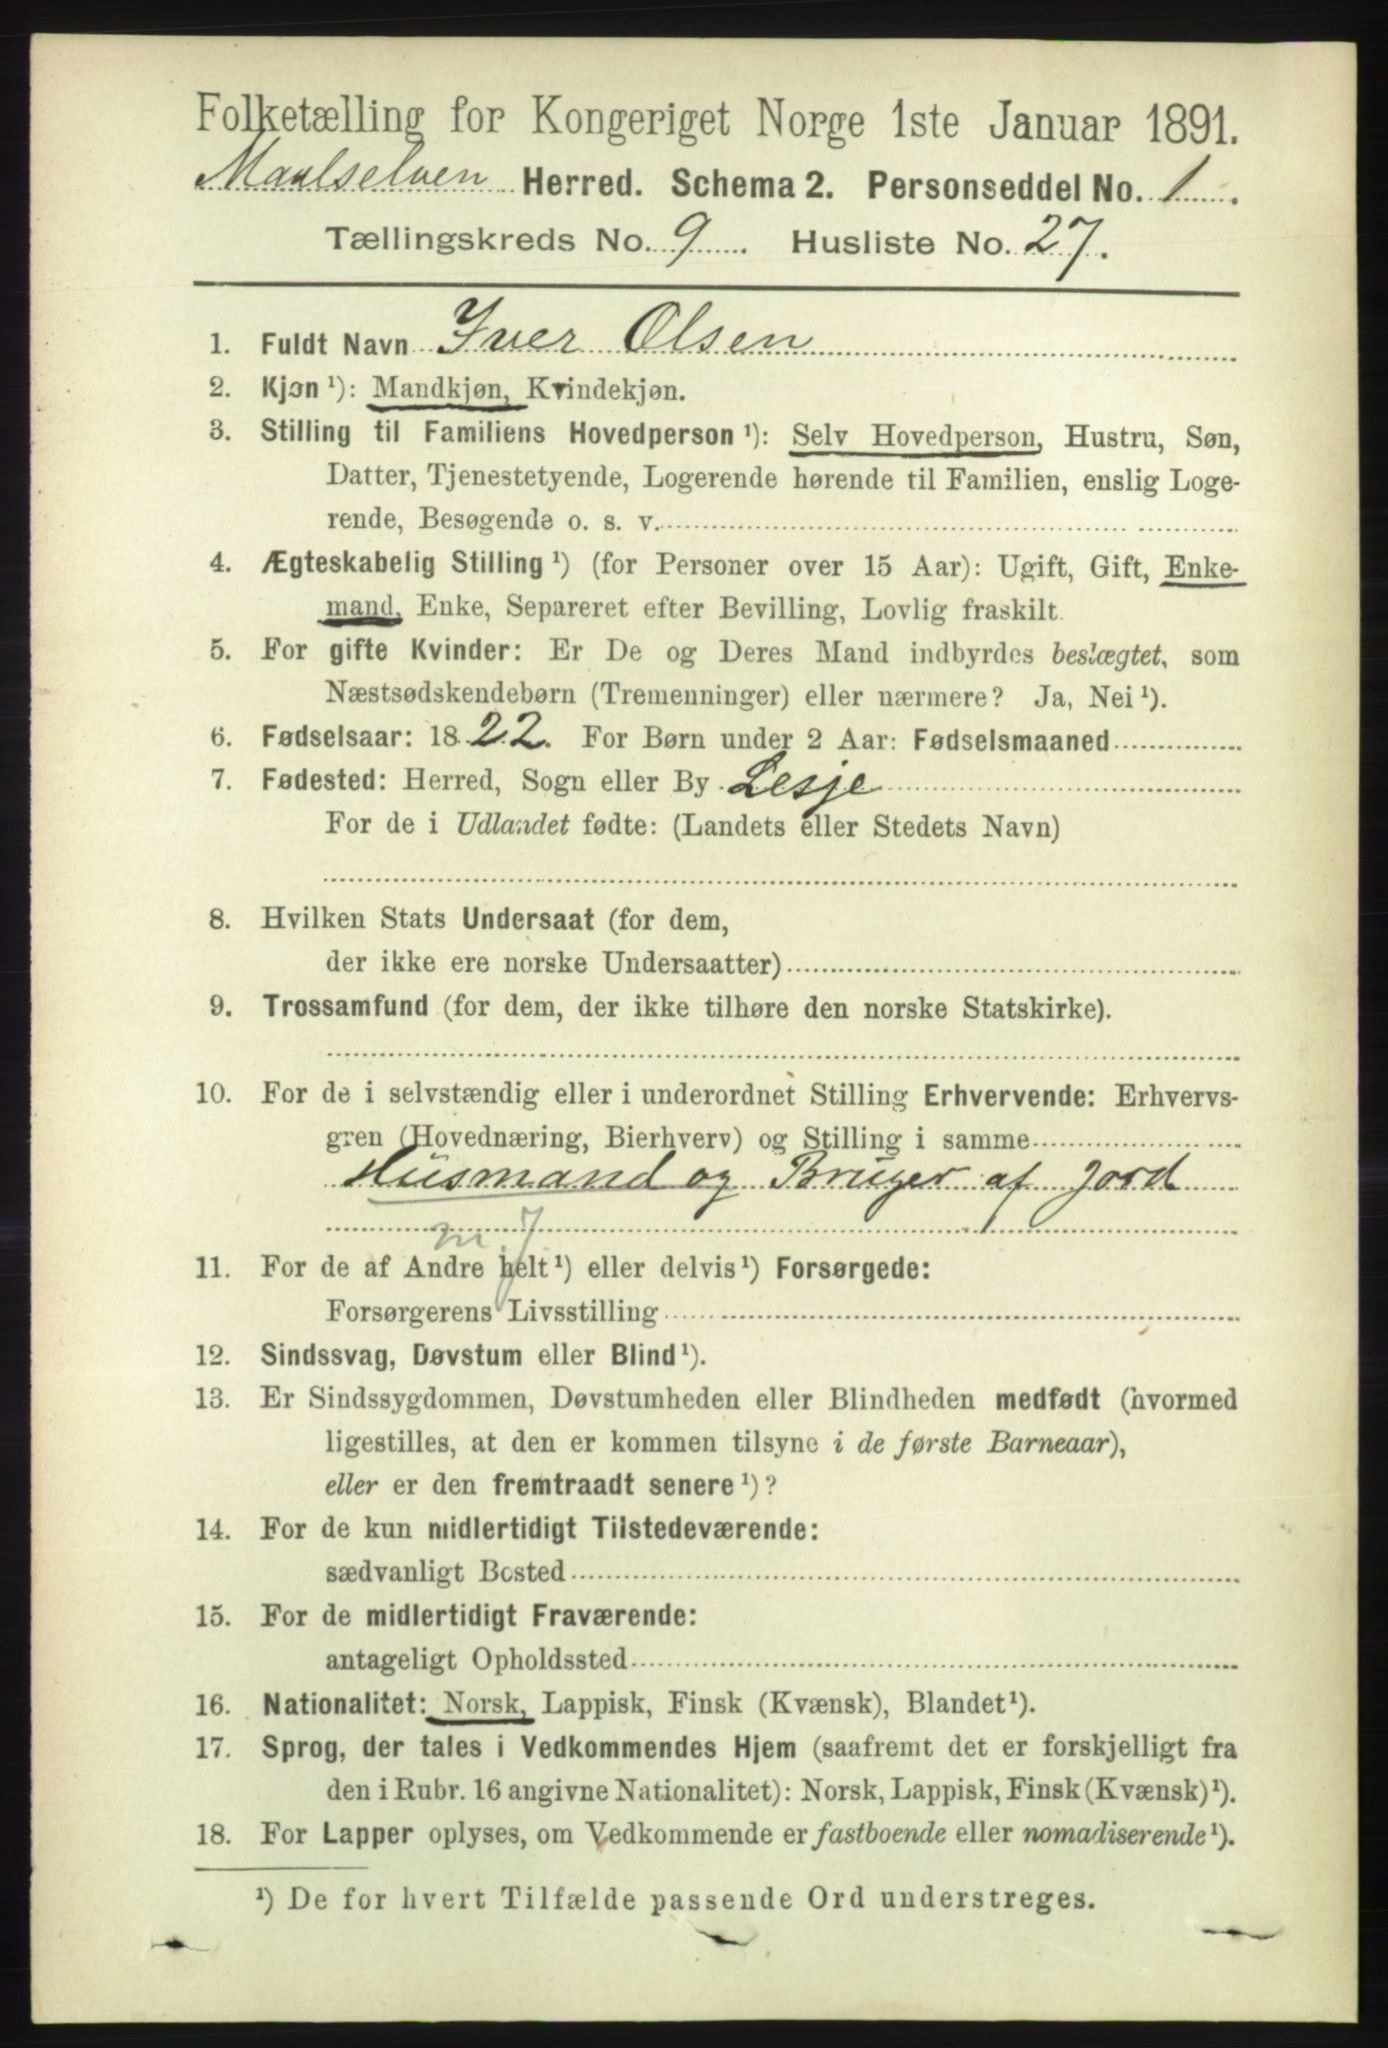 Folketælling for Kongeriget Norge 1ste Januar 1891.
Maalselven Herred. Schema 2. Personseddel No. 1.
Tællingskreds No. 9. Husliste No. 27.
1. Fuldt Navn Iver Olsen
2. Kjøn ¹): Mandkjøn, Kvindekjøn.
3. Stilling til Familiens Hovedperson ¹): Selv Hovedperson, Hustru, Søn,
Datter, Tjenestetyende, Logerende hørende til Familien, enslig Loge-
rende, Besøgende o. s. v.
4. Ægteskabelig Stilling ¹) (for Personer over 15 Aar): Ugift, Gift, Enke-
mand, Enke, Separeret efter Bevilling, Lovlig fraskilt.
5. For gifte Kvinder: Er De og Deres Mand indbyrdes beslægtet, som
Næstsødskendebørn (Tremenninger) eller nærmere? Ja, Nei ¹).
6. Fødselsaar: 1822. For Børn under 2 Aar: Fødselsmaaned
7. Fødested: Herred, Sogn eller By Lesje
For de i Udlandet fødte: (Landets eller Stedets Navn)
8. Hvilken Stats Undersaat (for dem,
der ikke ere norske Undersaatter)
9. Trossamfund (for dem, der ikke tilhøre den norske Statskirke).
10. For de i selvstændig eller i underordnet Stilling Erhvervende: Erhvervs-
gren (Hovednæring, Bierhverv) og Stilling i samme
Husmand og Bruger af Jord
m. J
11. For de af Andre helt ¹) eller delvis ¹) Forsørgede:
Forsørgerens Livsstilling
12. Sindssvag, Døvstum eller Blind ¹).
13. Er Sindssygdommen, Døvstumheden eller Blindheden medfødt (hvormed
ligestilles, at den er kommen tilsyne i de første Barneaar),
eller er den fremtraadt senere ¹)?
14. For de kun midlertidigt Tilstedeværende:
sædvanligt Bosted
15. For de midlertidigt Fraværende:
antageligt Opholdssted
16. Nationalitet: Norsk, Lappisk, Finsk (Kvænsk), Blandet ¹).
17. Sprog, der tales i Vedkommendes Hjem (saafremt det er forskjelligt fra
den i Rubr. 16 angivne Nationalitet): Norsk, Lappisk, Finsk (Kvænsk) ¹).
18. For Lapper oplyses, om Vedkommende er fastboende eller nomadiserende ¹).
¹) De for hvert Tilfælde passende Ord understreges.